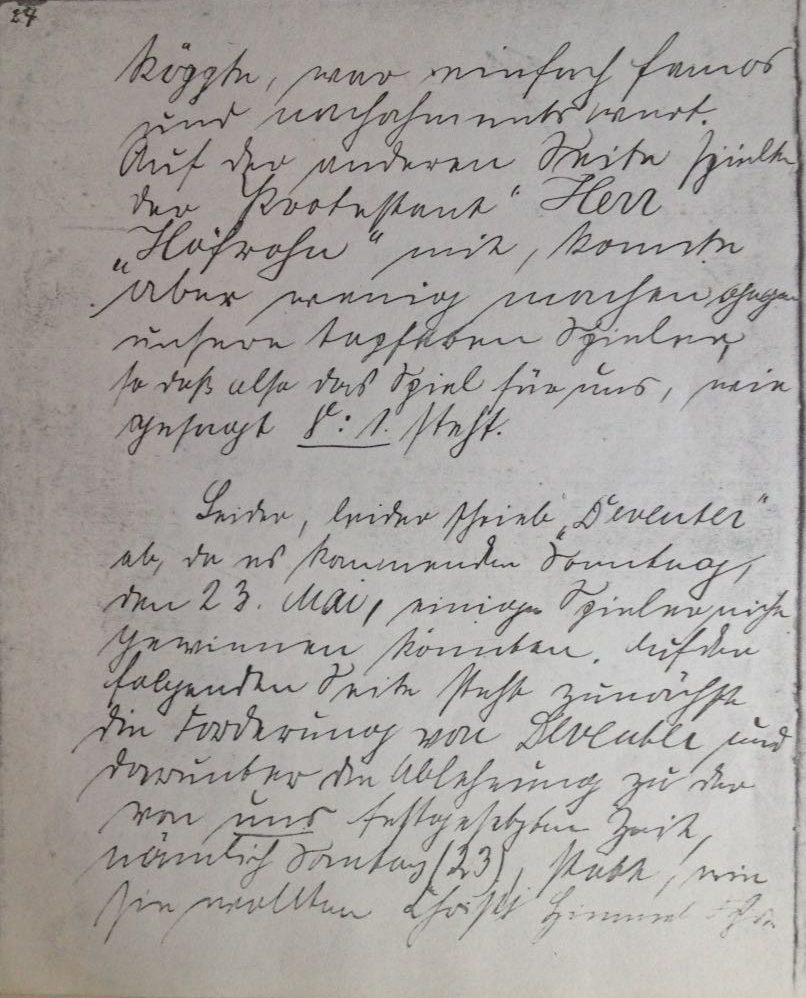 24
köpfte, war einfach famos
und nachahmenswert.
Auf der anderen Seite spielte
der „Protestant“ Herr
„Hofrohn“ mit, konnte
aber wenig machen gegen
unsere tapferen Spieler,
so daß also das Spiel für uns, wie
gesagt 8:1. steht.
Leider, leider schrieb „Deventer“
ab, da es kommenden Sonntag,
den 23. Mai, einige Spieler nicht
gewinnen könnten. Auf der
folgenden Seite steht zunächst
die Forderung von Deventer und
darunter die Ablehnung zu der
von uns festgesetzten Zeit,
nämlich Sonntag (23), statt, wie
sie wollten Christi Himmelfahr